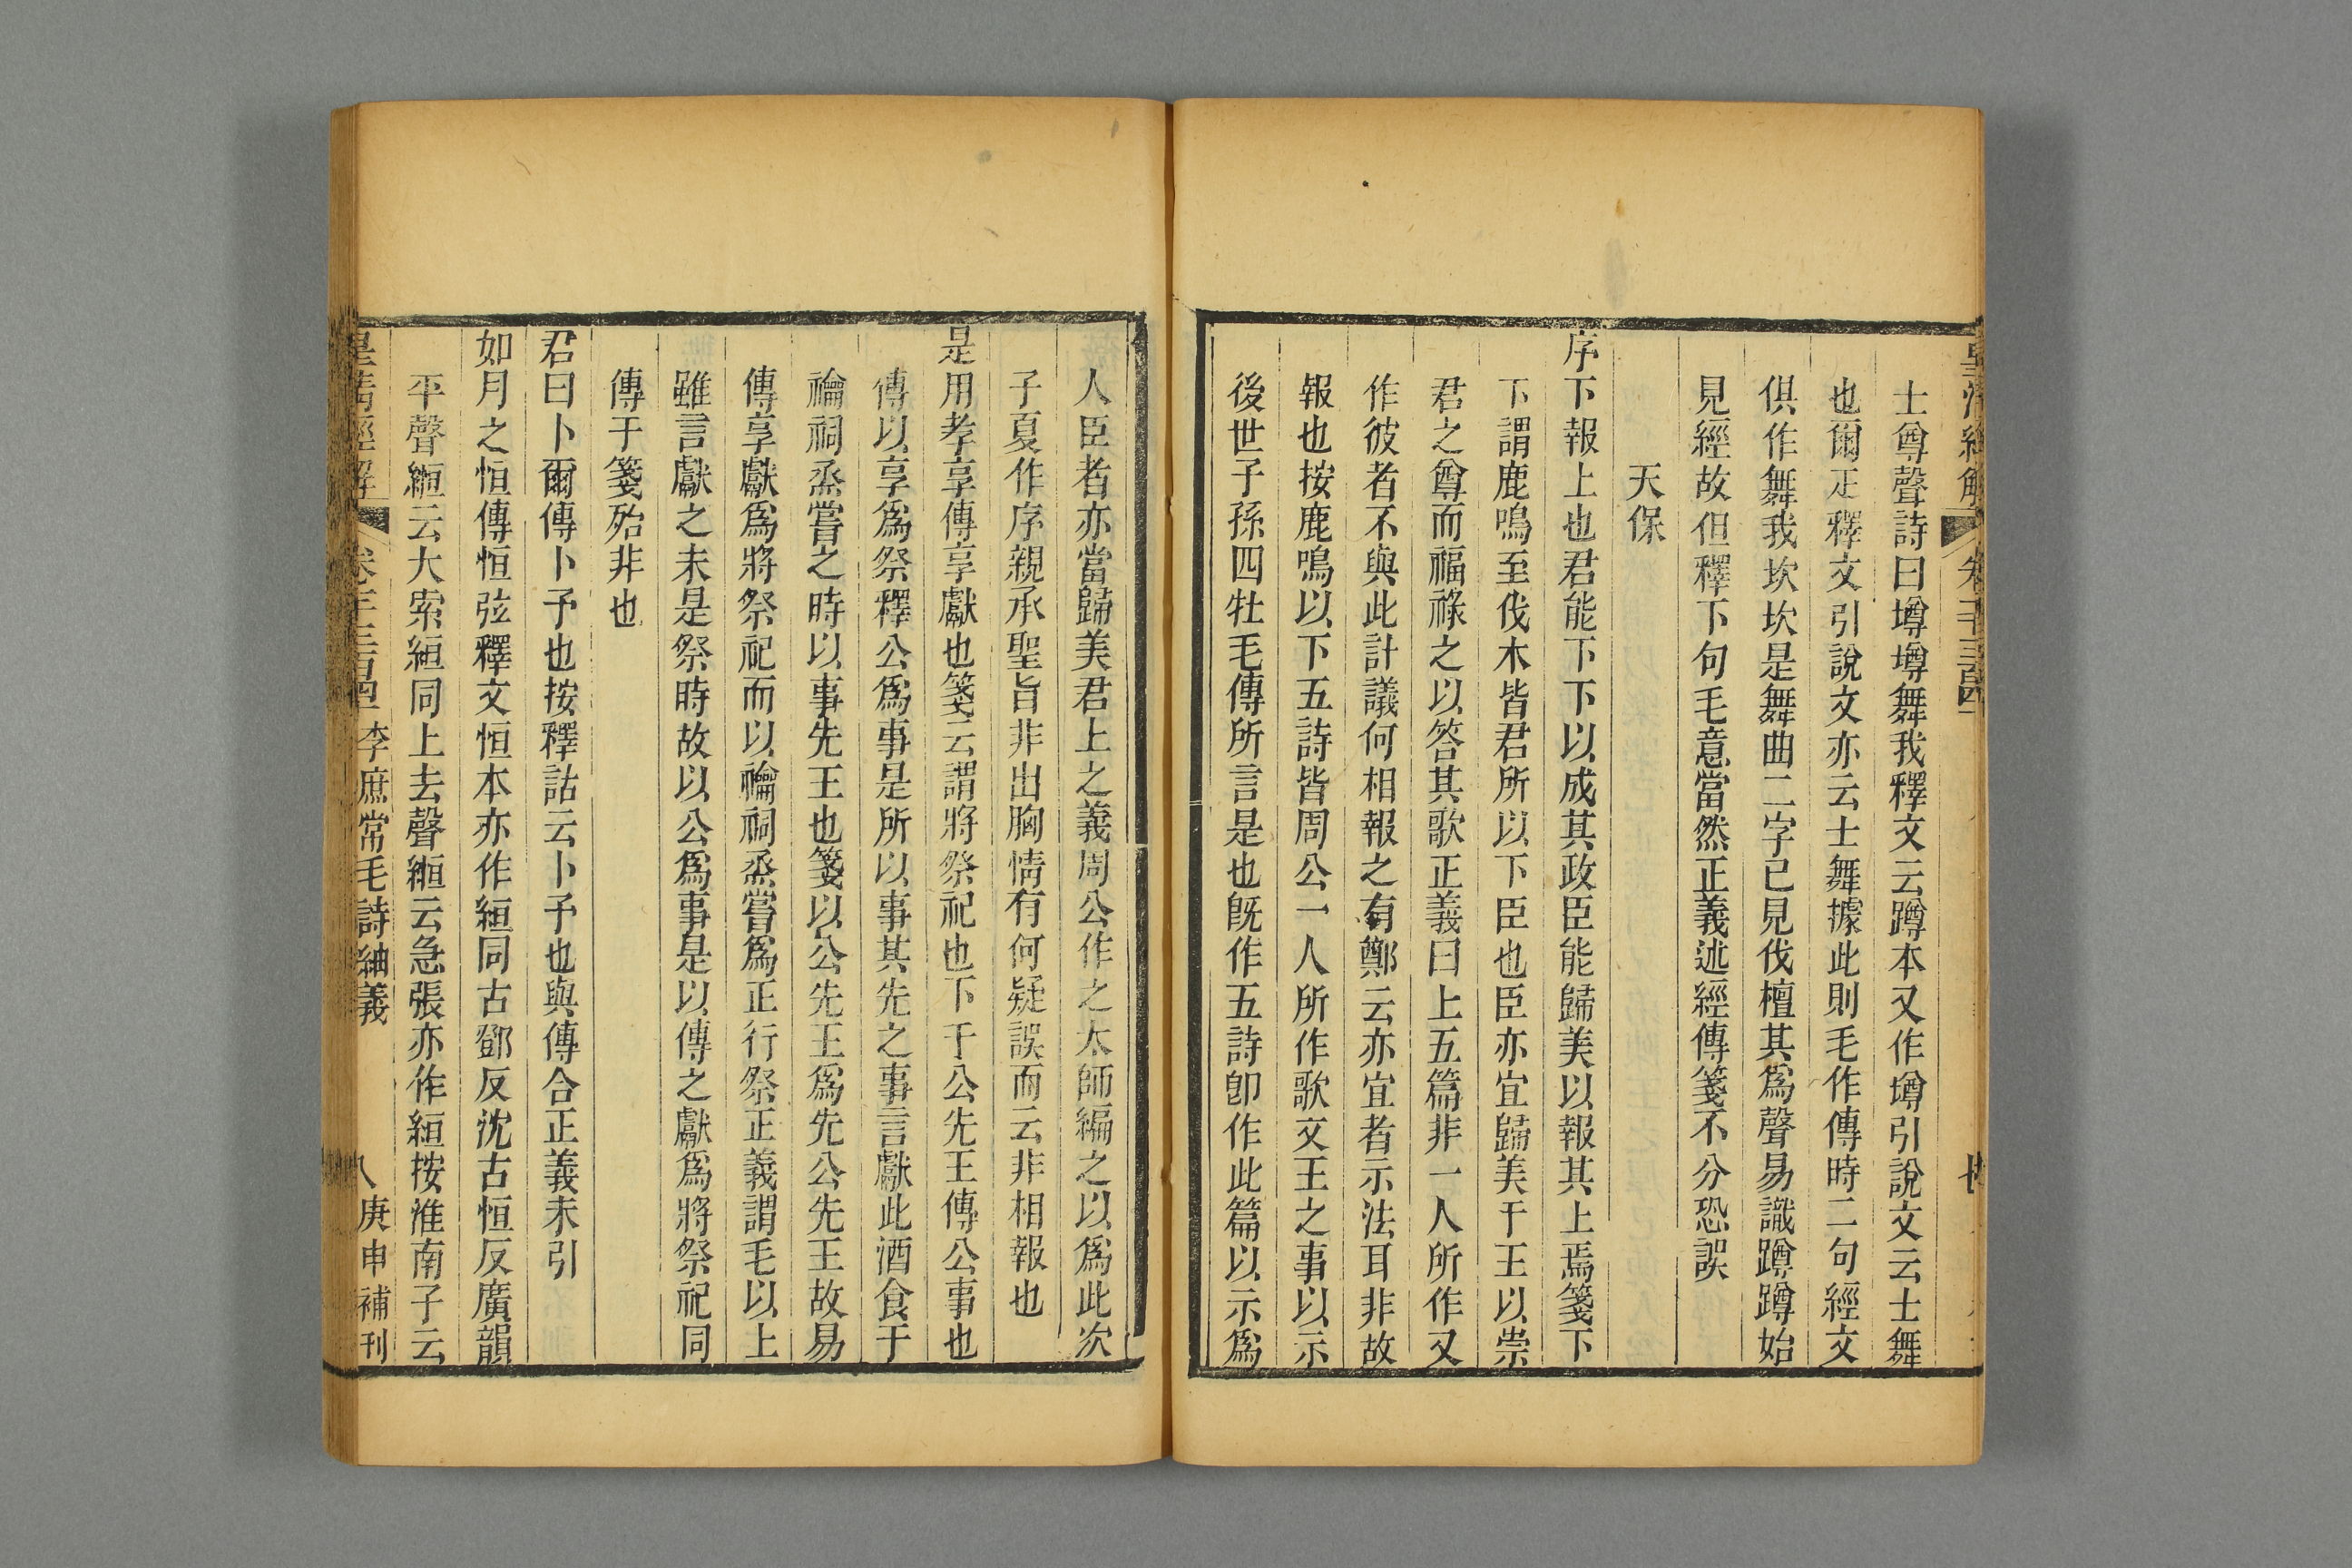 士尊聲詩曰墫墫舞我釋文云蹲本又作墫引說文云士舞
也爾疋釋文引說文亦云士舞據此則毛作傳時二句經文
俱作舞我坎坎是舞曲二字已見伐檀其爲聲易識蹲蹲始
見經故但釋下句毛意當然正義述經傳箋不分恐誤
天保
序下報上也君能下下以成其政臣能歸美以報其上焉箋下
下謂鹿鳴至伐木皆君所以下臣也臣亦宜歸美于王以崇
君之尊而福祿之以答其歌正義曰上五篇非一人所作又
作彼者不與此計議何相報之有鄭云亦宜者示法耳非故
報也按鹿鳴以下五詩皆周公一人所作歌文王之事以示
後世子孫四牡毛傳所言是也旣作五詩卽作此篇以示爲
人臣者亦當歸美君上之義周公作之太師編之以爲此次
子夏作序親承聖旨非出胸情有何疑誤而云非相報也
是用孝享傳享獻也箋云謂將祭祀也下于公先王傳公事也
傳以享爲祭釋公爲事是所以事其先之事言獻此酒食于
禴祠烝嘗之時以事先王也箋以公先王爲先公先王故易
傳享獻爲將祭祀而以禴祠烝嘗爲正行祭正義謂毛以上
雖言獻之未是祭時故以公爲事是以傳之獻爲將祭祀同
傳于箋殆非也
君曰卜爾傳卜予也按釋詁云卜予也與傳合正義未引
如月之恒傳恒弦釋文恒本亦作縆同古鄧反沈古恒反廣韻
平聲緪云大索縆同上去聲緪云急張亦作縆按淮南子云
皇清經解 卷一千三百四十 李庶常毛詩紬義 八 庚申補刊